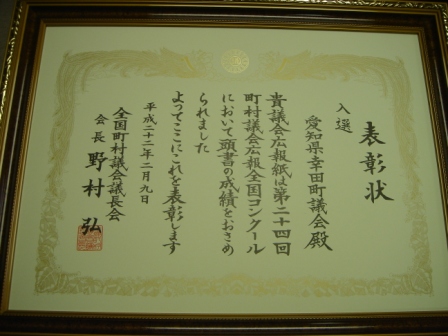 表彰状
入選
愛知県幸田町議会殿
貴議会広報紙は第二十四回
町村議会広報全国コンクール
において頭書の成績をおさめ
られました
よってここにこれを表彰します
平成二十二年二月九日
全国町村議会議長会
会長 野村弘